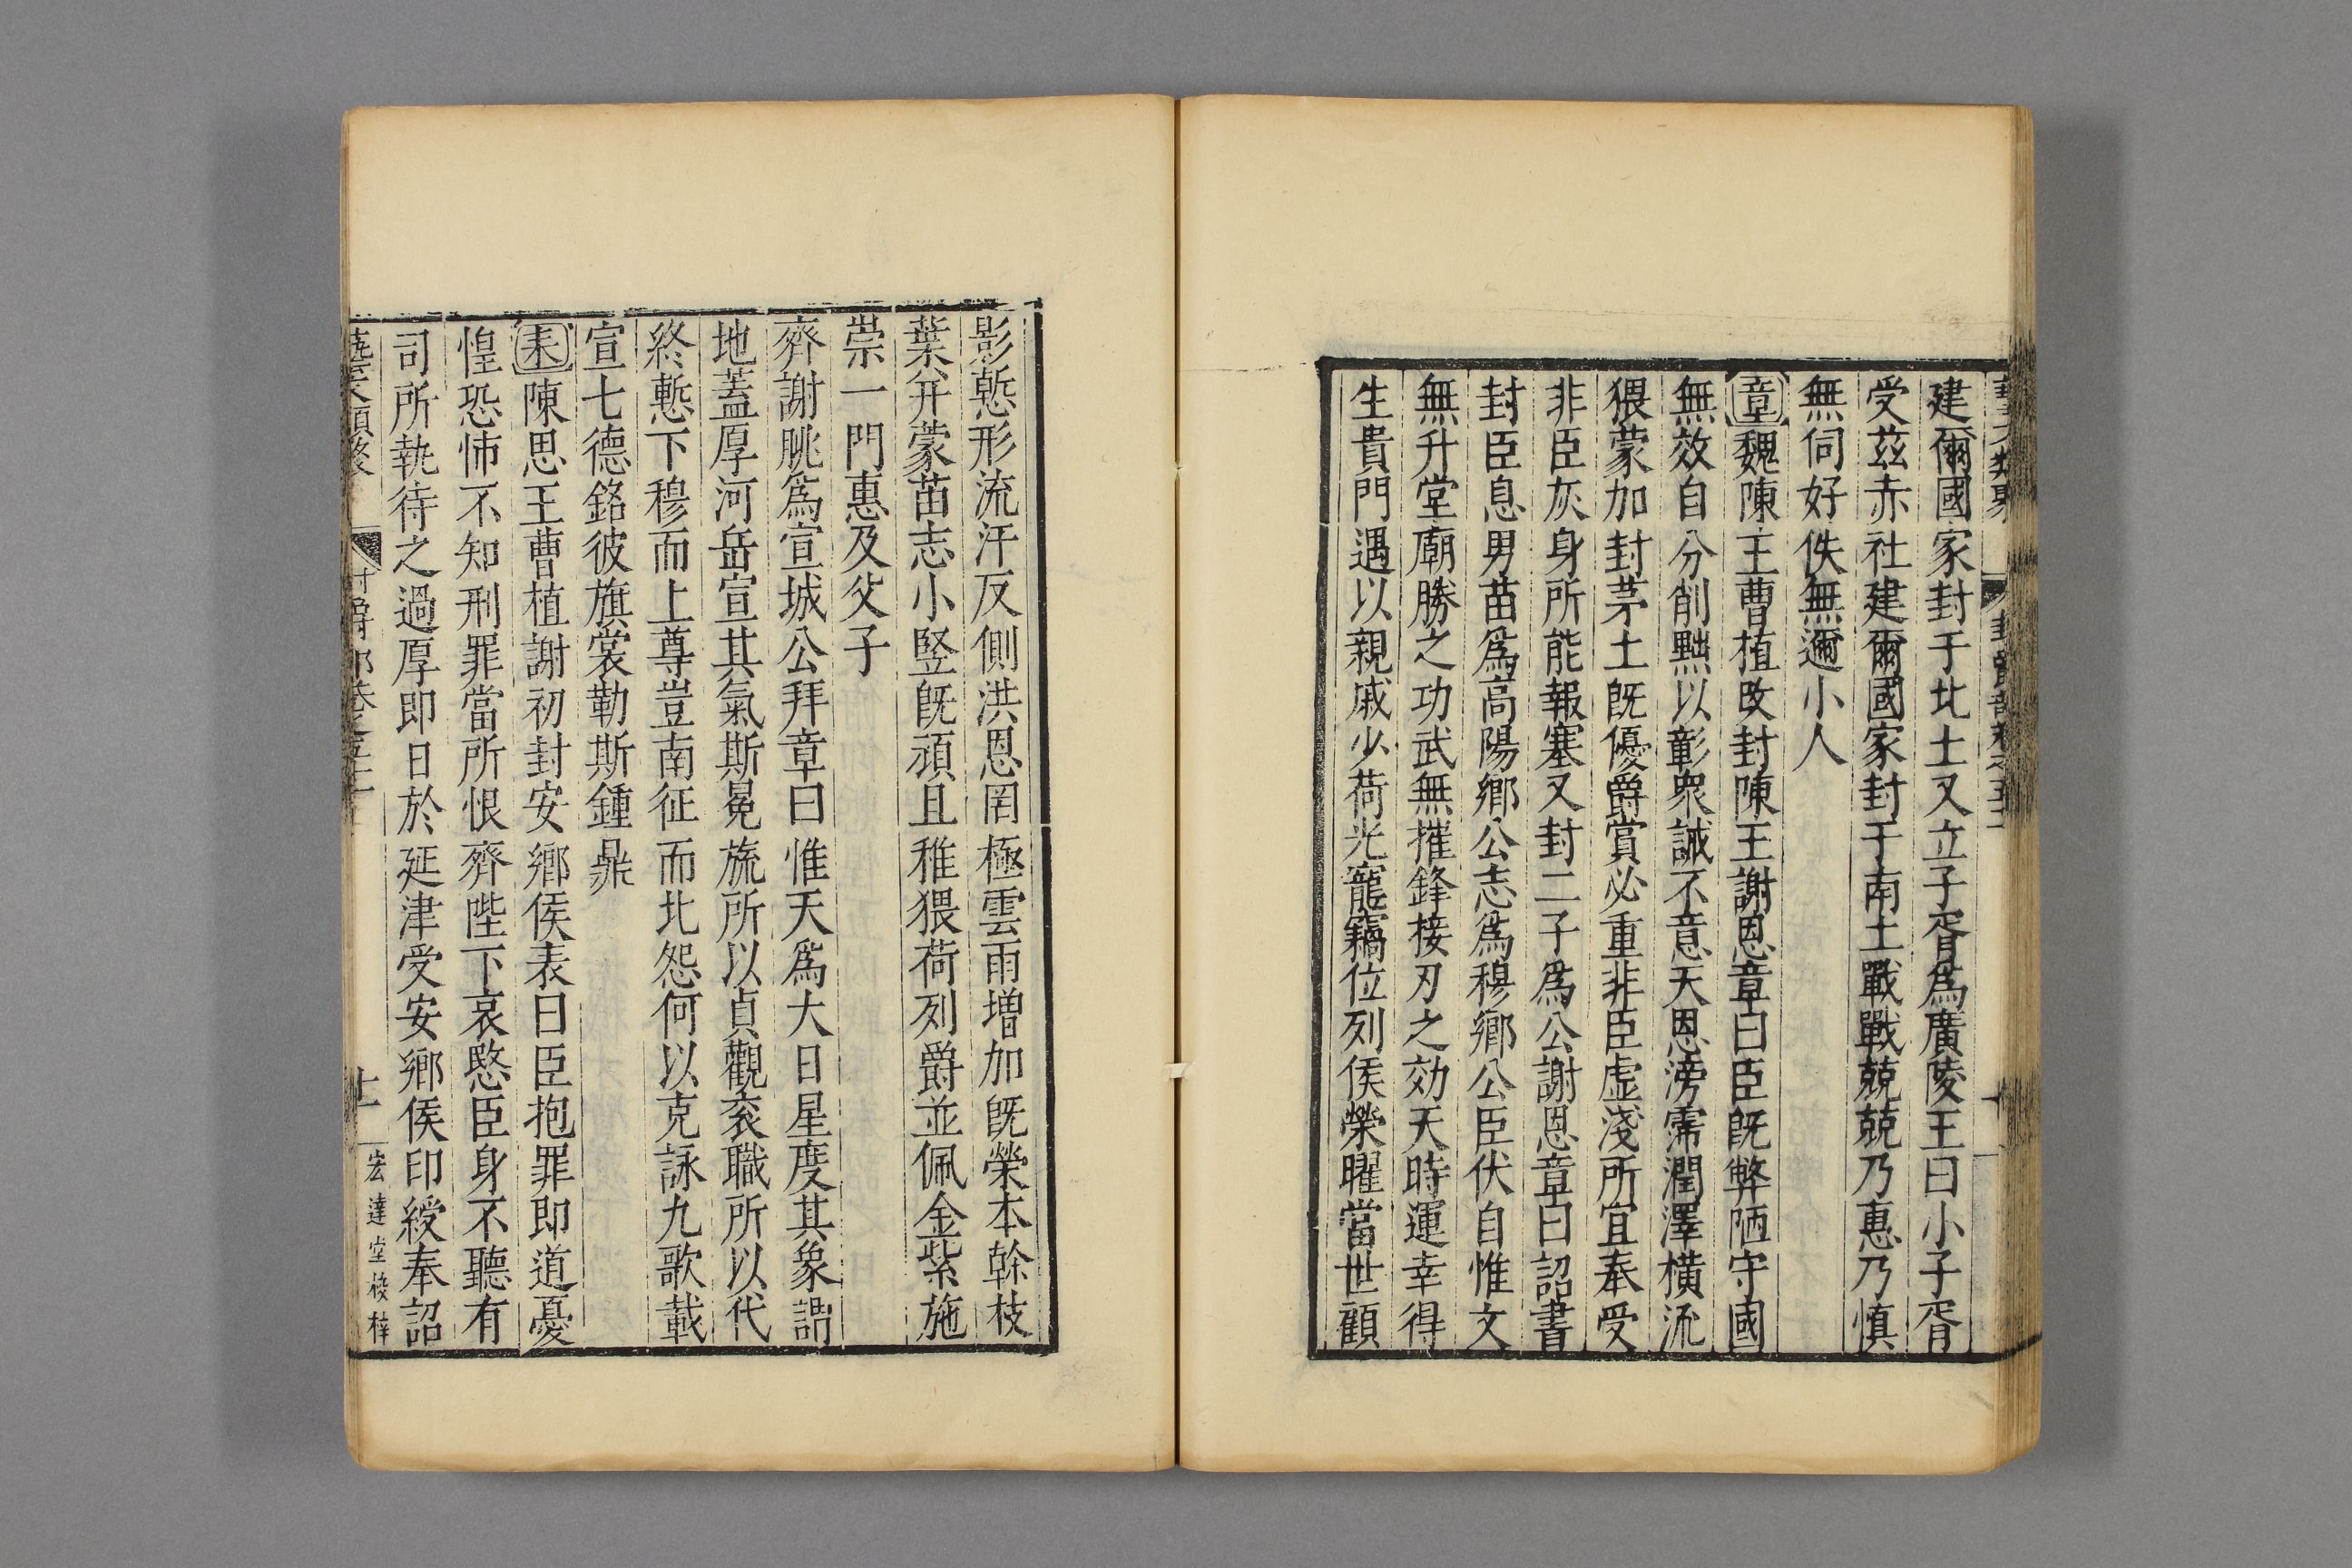 藝文類聚 封爵部卷之五十一
建爾國家封于北土又立子胥為廣陵王曰小子胥
受茲赤社建爾國家封于南土戰戰兢兢乃惠乃慎
無侗好佚無邇小人
章魏陳王曹植改封陳王謝恩章曰臣旣弊陋守國
無效自分削黜以彰衆誡不意天恩滂霈潤澤橫流
猥蒙加封茅土旣優爵賞必重非臣虛淺所宜奉受
非臣灰身所能報塞又封二子為公謝恩章曰詔書
封臣息男苗為高陽鄉公志為穆鄉公臣伏自惟文
無升堂廟勝之功武無摧鋒接刃之効天時運幸得
生貴門遇以親戚少荷光寵竊位列侯榮曜當世顧
影慙形流汗反側洪恩罔極雲雨增加旣榮本幹枝
葉并蒙苗志小竪旣頑且稚猥荷列爵並佩金紫施
崇一門惠及父子
齊謝朓為宣城公拜章曰惟天為大日星度其象謂
地蓋厚河岳宣其氣斯冕旒所以貞觀衮職所以代
終慙下穆而上尊豈南征而北怨何以克詠九歌載
宣七德銘彼旗裳勒斯鍾鼎
表陳思王曹植謝初封安鄉侯表曰臣抱罪即道憂
惶恐怖不知刑罪當所恨齊陛下哀愍臣身不聽有
司所執待之過厚即日於延津受安鄉侯印綬奉詔
藝文類聚 封爵部卷之五十一 十一 宏達堂校梓